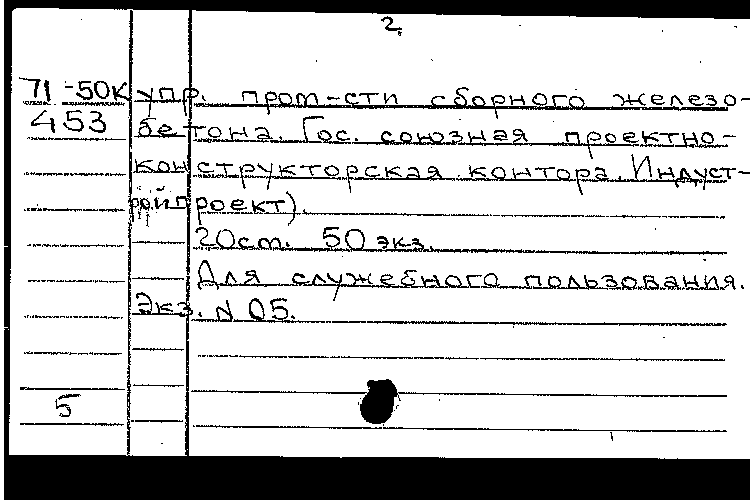 2.
71-50К упр. пром-сти сборного железо-
453 бетона. Гос. союзная проектно-
конструкторская контора. Индуст-
ройпроект).
20ст. 50 экз.
Для служебного пользования.
Экз. N 05.
5